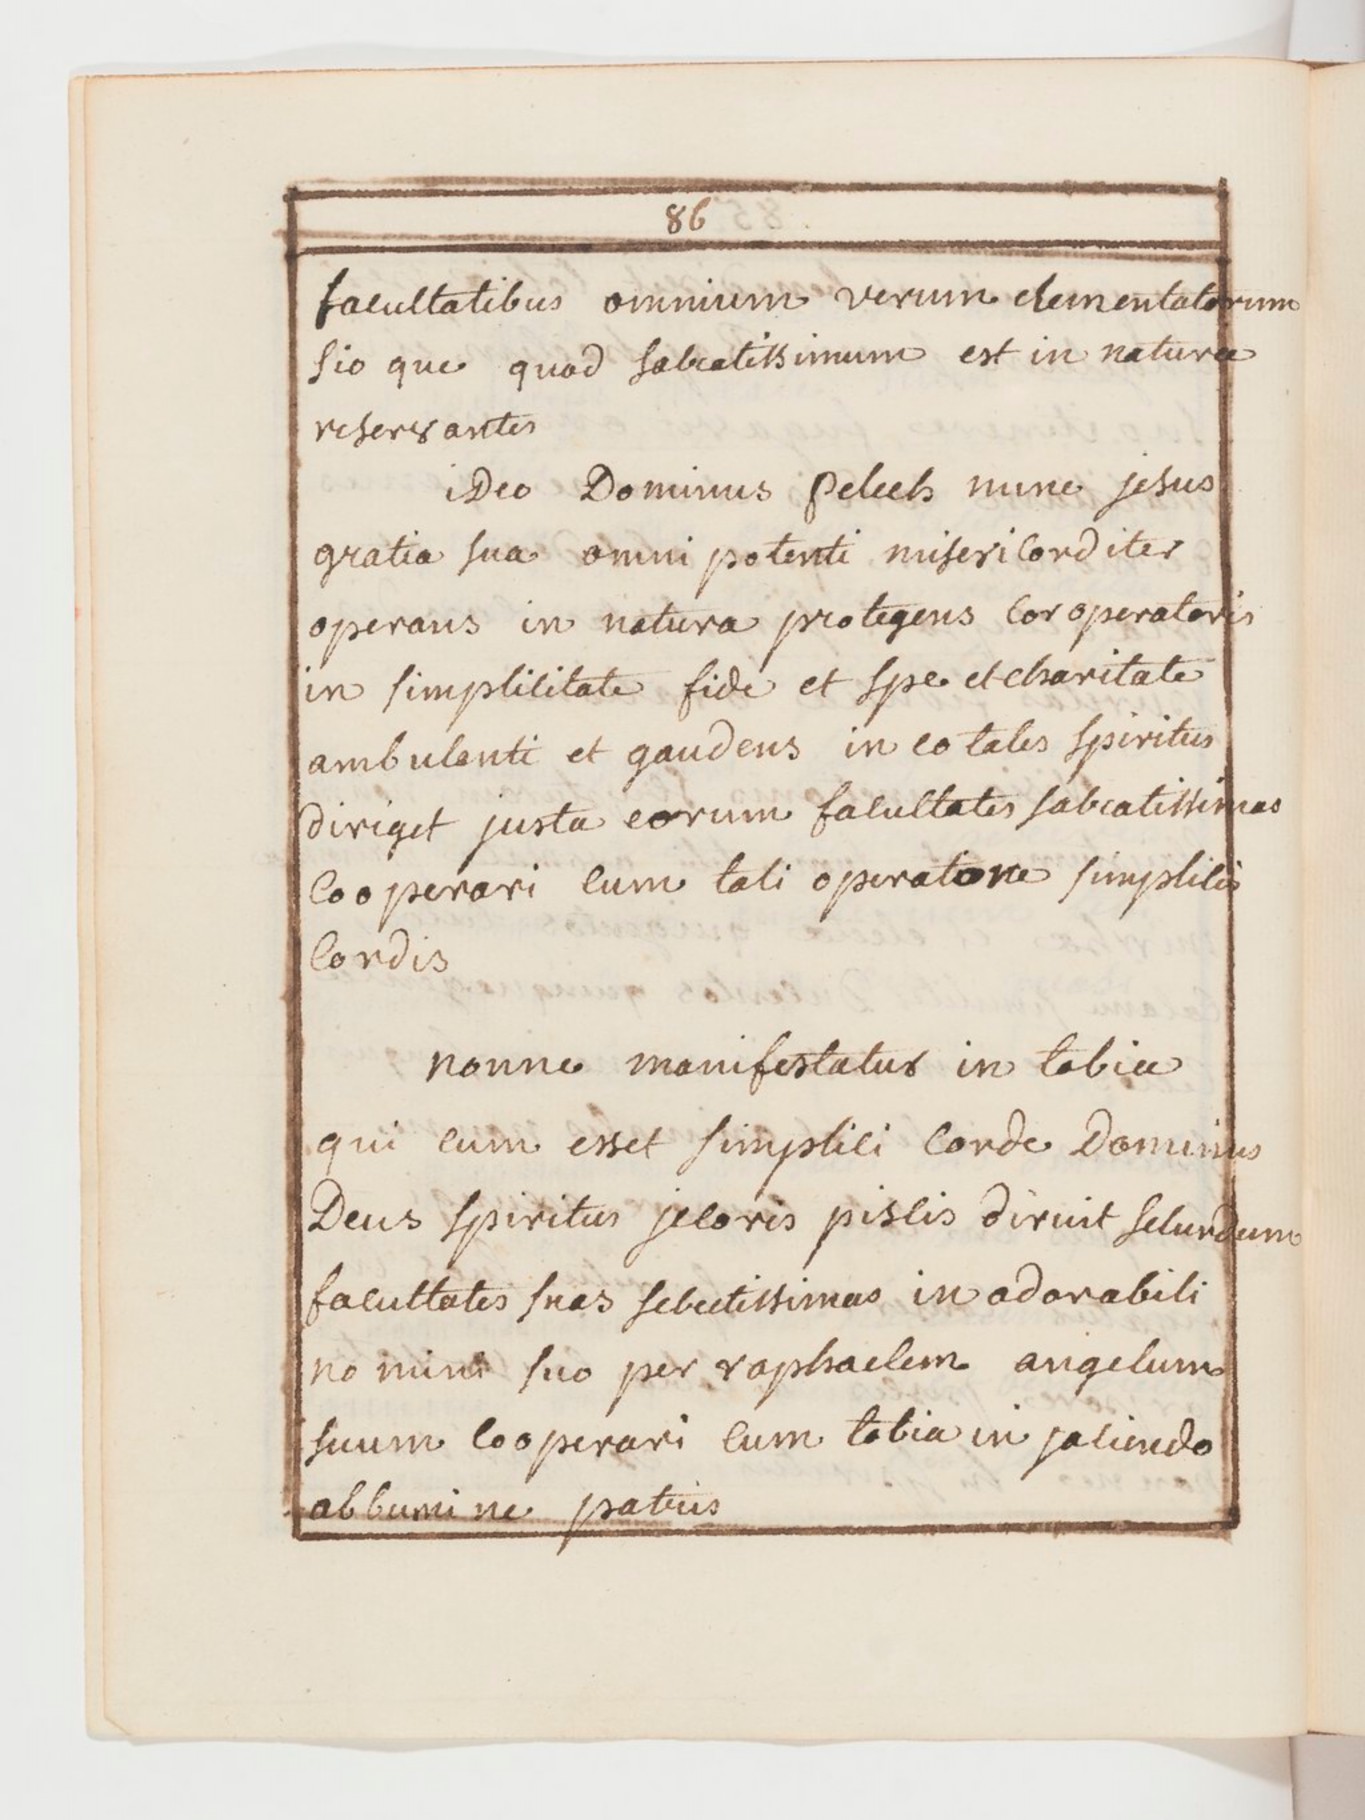 86
facultatibus omnium verum elementatorum
sio que quod sabcatissimum est in natura
reservantes
ideo Dominus pelech nunc jesus
gratia sua omni potenti misericorditer
operans in natura protegens cor operatoris
in simplicitate fide et spe et charitate
ambulanti et gaudens in eo tales spiritus
diriget justa eorum facultates sabcatissimas
cooperari cum tali operatore simplicis
cordis
nonne manifestatur in tobia
qui cum esset simplici corde Dominus
Deus spiritus jecoris piscis diruit secundum
facultates suas secretissimas in adorabili
no mine suo per raphaelem angelum
suum cooperari cum tobia in jaciendo
abbumine patris